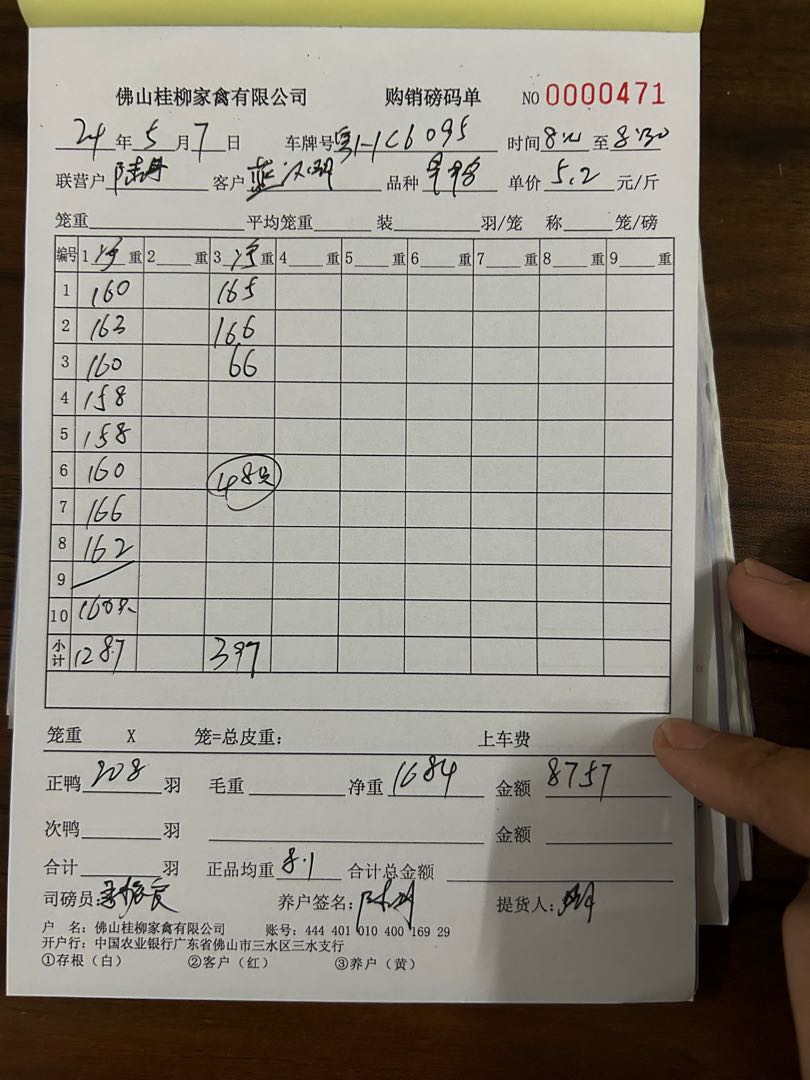 佛山桂柳家禽有限公司 购销磅码单 NO 0000471
24年5月7日 车牌号 时间 至 8:30
联营户 客户 品种 单价 5.2 元/斤
笼重 平均笼重 装 羽/笼 称 笼/磅
编号 1净重 2重 3净重 4重 5重 6重 7重 8重 9重
1 160 165
2 163 166
3 160 66
4 158
5 158
6 160 48只
7 166
8 162
9
10 160只
小计 1287 397
笼重 X 笼=总皮重: 上车费
正鸭 208 羽 毛重 净重 1684 金额 8757
次鸭 羽 金额
合计 羽 正品均重 8.1 合计总金额
司磅员: 养户签名: 提货人:
户 名: 佛山桂柳家禽有限公司 账号: 444 401 010 400 169 29
开户行: 中国农业银行广东省佛山市三水区三水支行
①存根（白） ②客户（红） ③养户（黄）